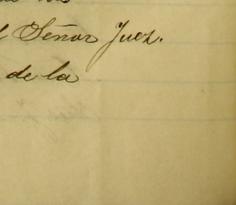 Señor Juez.
de la